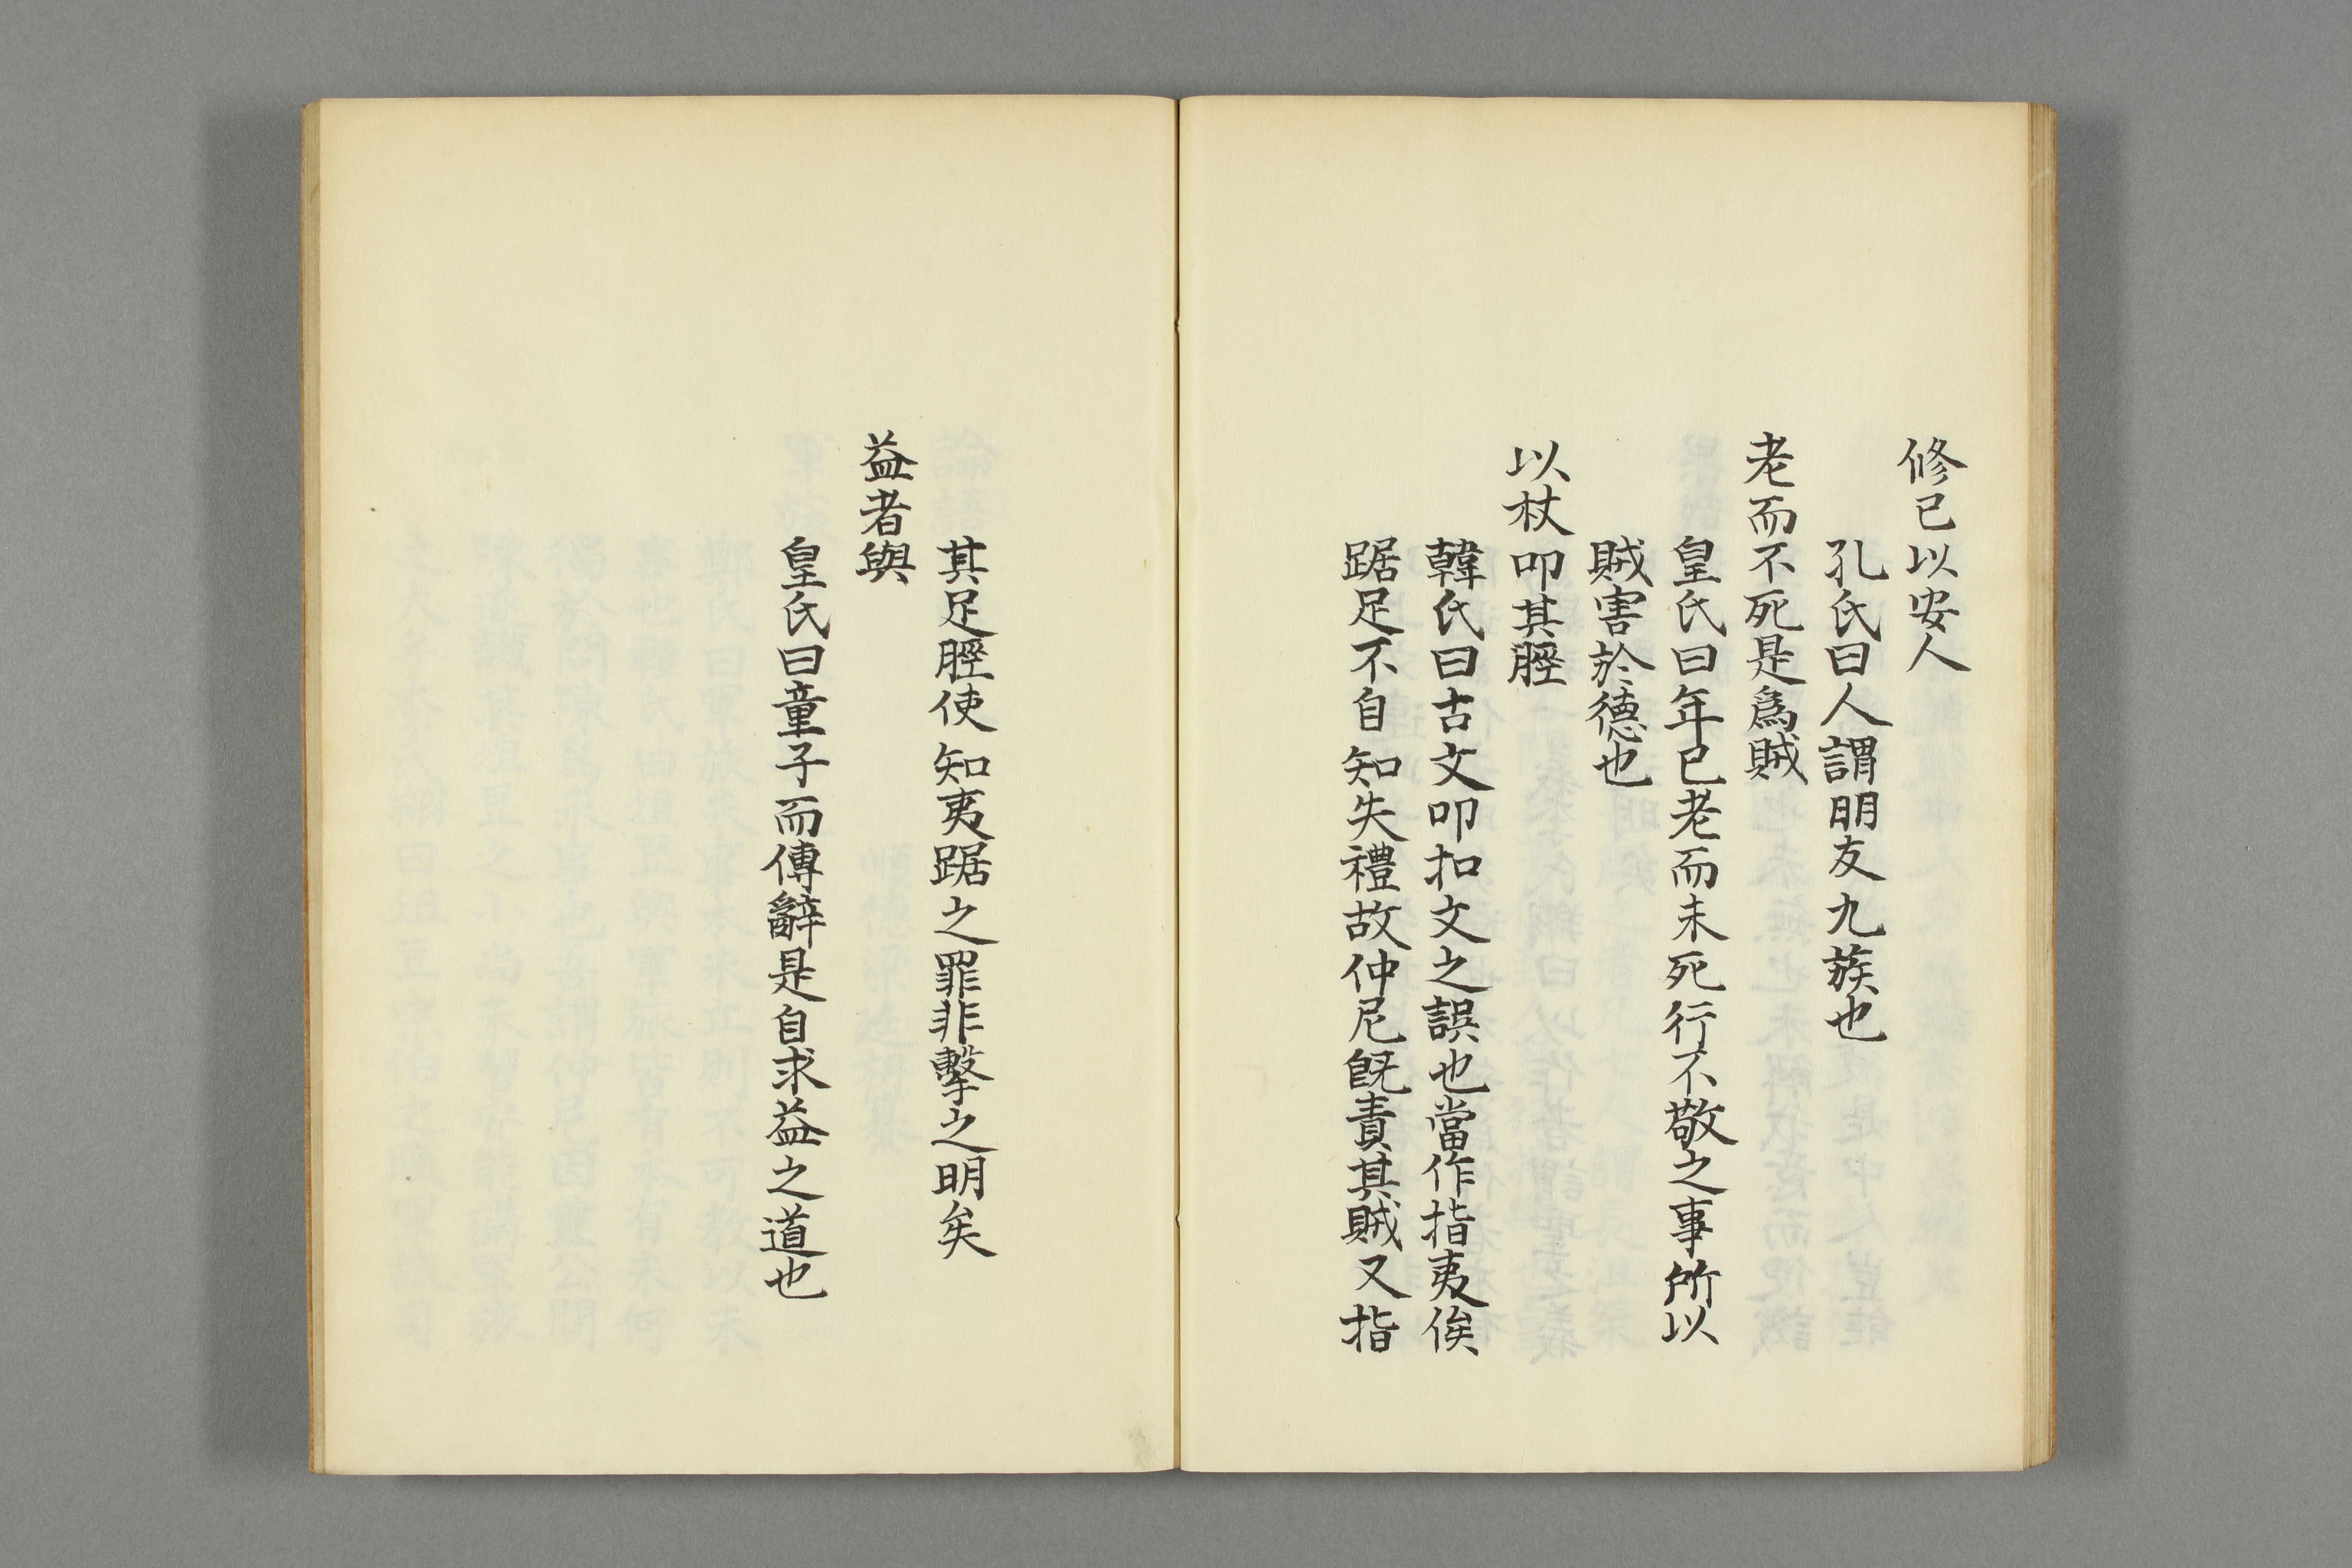 修已以安人
孔氏曰人謂朋友九族也
老而不死是爲賊
皇氏曰年已老而未死行不敬之事所以
賊害於德也
以杖叩其脛
韓氏曰古文叩扣文之誤也當作指夷俟
踞足不自知失禮故仲尼旣責其賊又指
其足脛使知夷踞之罪非擊之明矣
益者與
皇氏曰童子而傳辭是自求益之道也